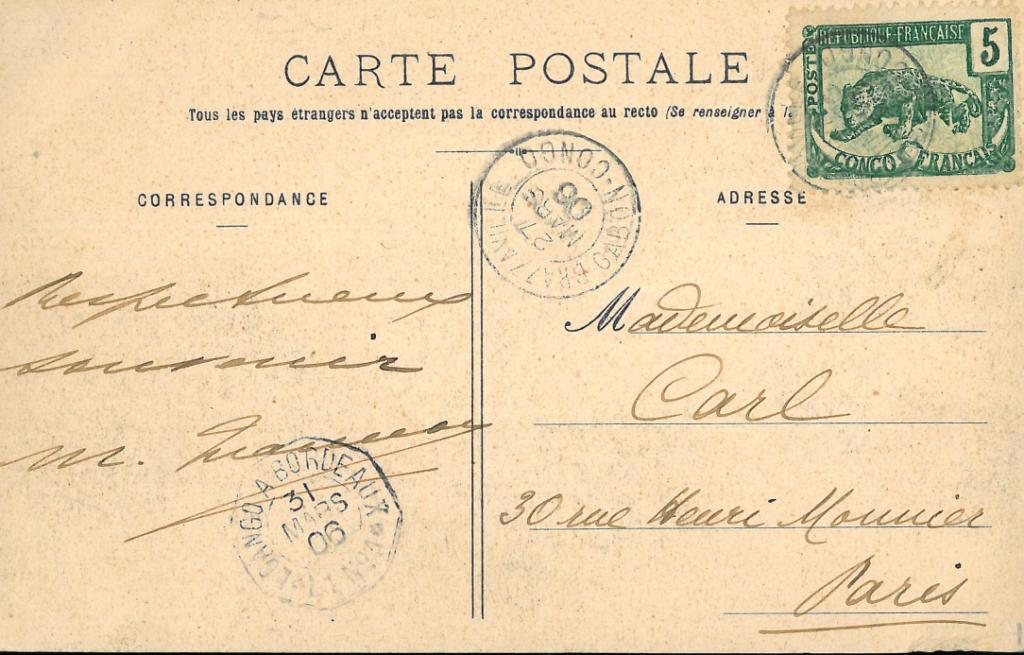 CARTE POSTALE
Tous les pays étrangers n'acceptent pas la correspondance au recto (Se renseigner à la
RÉPUBLIQUE-FRANÇAISE
POSTES
5
CONGO FRANÇAIS
CORRESPONDANCE
ADRESSE
GABON-CONGO
27
MARS
06
BRAZZAVILLE
Respectueux
souvenir
M.
LOANGO A BORDEAUX
31
MARS
06
Mademoiselle
Carl
30 rue Henri Monnier
Paris